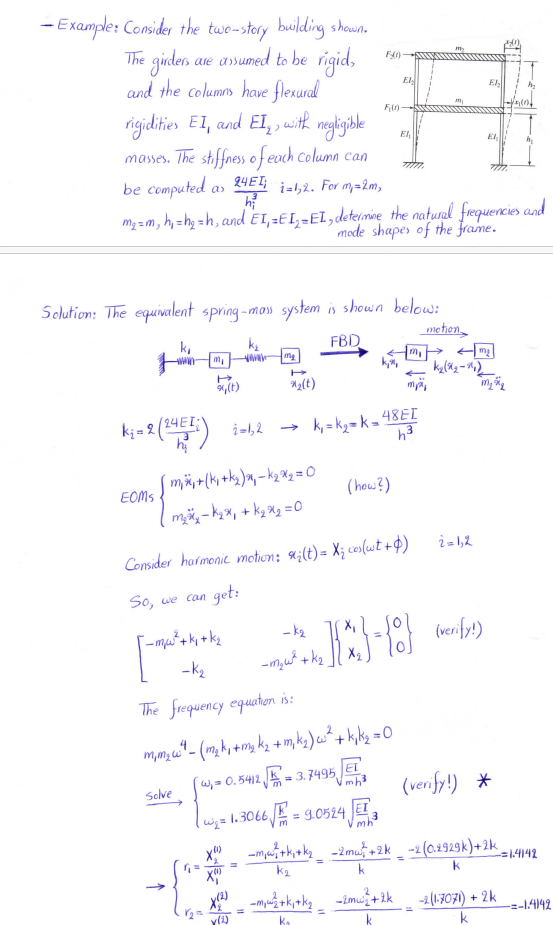 – Example: Consider the two-story building shown.
The girders are assumed to be rigid,
and the columns have flexural
rigidities EI₁ and EI₂, with negligible
masses. The stiffness of each column can
be computed as 24EIᵢ/hᵢ³ i=1,2. For m₁=2m,
m₂=m, h₁=h₂=h, and EI₁=EI₂=EI, determine the natural frequencies and
mode shapes of the frame.
x₂(t)
F₂(t) m₂
EI₂ EI₂ h₂
F₁(t) m₁ x₁(t)
EI₁ EI₁ h₁
Solution: The equivalent spring-mass system is shown below:
k₁ m₁ k₂ m₂
x₁(t) x₂(t)
FBD
motion
k₁x₁ m₁ k₂(x₂-x₁) m₂
m₁ẍ₁ m₂ẍ₂
kᵢ = 2(24EIᵢ/hᵢ³) i=1,2 → k₁=k₂=k= 48EI/h³
EOMs { m₁ẍ₁+(k₁+k₂)x₁-k₂x₂=0
m₂ẍ₂-k₂x₁+k₂x₂=0 (how?)
Consider harmonic motion: xᵢ(t)= Xᵢ cos(ωt+ϕ) i=1,2
So, we can get:
[-m₁ω²+k₁+k₂ -k₂
-k₂ -m₂ω²+k₂] {X₁ X₂} = {0 0} (verify!)
The frequency equation is:
m₁m₂ω⁴-(m₂k₁+m₂k₂+m₁k₂)ω²+k₁k₂=0
solve → { ω₁= 0.5412 √(k/m) = 3.7495 √(EI/mh³)
ω₂= 1.3066 √(k/m) = 9.0524 √(EI/mh³) (verify!) *
→ { r₁= X₂⁽¹⁾/X₁⁽¹⁾ = (-m₁ω₁²+k₁+k₂)/k₂ = (-2mω₁²+2k)/k = (-2(0.2929k)+2k)/k =1.4142
r₂= X₂⁽²⁾/X₁⁽²⁾ = (-m₁ω₂²+k₁+k₂)/k₂ = (-2mω₂²+2k)/k = (-2(1.7071)+2k)/k =-1.4142